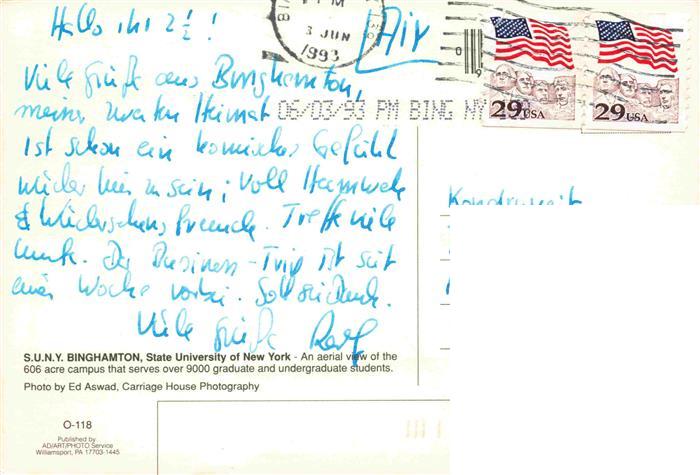 Hallo ihr 2½!
Air
BI
PM
3 JUN
1993
06/03/93 PM BING NY
29 USA
29 USA
Viele Grüße aus Binghamton,
meiner zweiten Heimat
Ist schon ein komisches Gefühl
wieder hier zu sein; voll Heimweh
& Wiedersehensfreude. Treffe viele
Leute. Der Business-Trip ist seit
einer Woche vorbei.
Viele Grüße Ralf
S.U.N.Y. BINGHAMTON, State University of New York - An aerial view of the
606 acre campus that serves over 9000 graduate and undergraduate students.
Photo by Ed Aswad, Carriage House Photography
O-118
Published by
AD/ART/PHOTO Service
Williamsport, PA 17703-1445